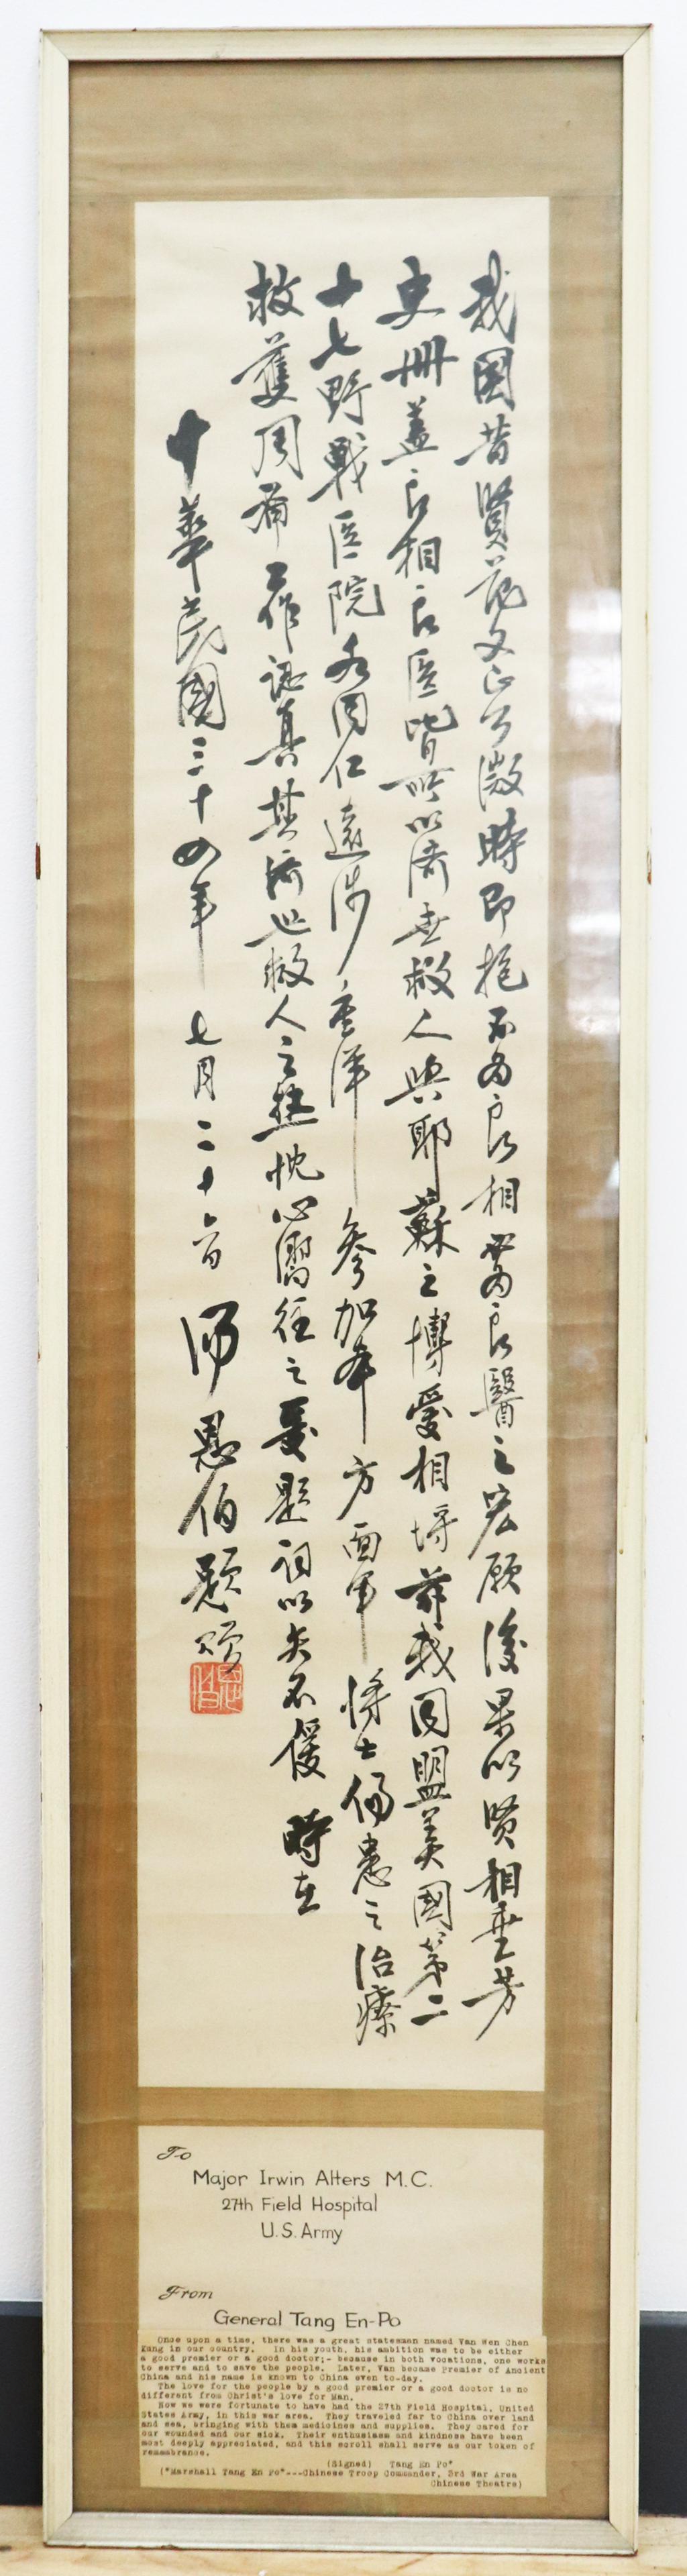 我國昔賢范文正公微時即抱不為良相當為良醫之宏願後果以賢相垂芳
史冊蓋良相良医皆所以濟世救人與耶蘇之博愛相埒茲我同盟美國第二
十七野戰医院各同仁遠涉重洋參加本方面軍將士傷患之治療
救護周備工作認真其濟世救人之熱忱心嚮往之爰題詞以矢不諼 時在
中華民國三十四年七月二十六日 湯恩伯題贈
恩伯
To
Major Irwin Alters M.C.
27th Field Hospital
U.S. Army
From
General Tang En-Po
Once upon a time, there was a great statesman named Van Wen Chen
Kung in our country. In his youth, his ambition was to be either
a good premier or a good doctor;- because in both vocations, one works
to serve and to save the people. Later, Van became Premier of Ancient
China and his name is known to China even to-day.
The love for the people by a good premier or a good doctor is no
different from Christ's love for Man.
Now we were fortunate to have had the 27th Field Hospital, United
States Army, in this war area. They traveled far to China over land
and sea, bringing with them medicines and supplies. They cared for
our wounded and our sick. Their enthusiasm and kindness have been
most deeply appreciated, and this scroll shall serve as our token of
remembrance.
(Signed) Tang En Po"
("Marshall Tang En Po"---Chinese Troop Commander, 3rd War Area
Chinese Theatre)